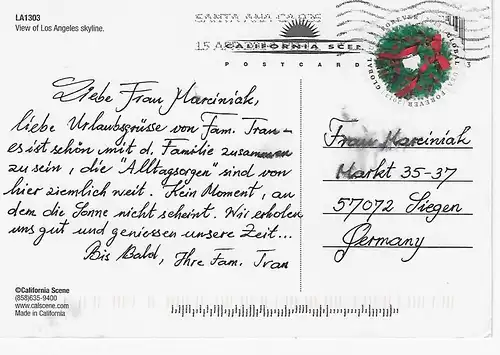 LA1303
View of Los Angeles skyline.
SANTA ANA CA 926
15 A
CALIFORNIA SCENE
POSTCARD
GLOBAL FOREVER
Liebe Frau Marciniak,
liebe Urlaubsgrüsse von Fam. Tran -
es ist schön mit d. Familie zusammen
zu sein, die "Alltagsorgen" sind von
hier ziemlich weit. Kein Moment, an
dem die Sonne nicht scheint. Wir erholen
uns gut und geniessen unsere Zeit...
Bis Bald, Ihre Fam. Tran
Frau Marciniak
Markt 35-37
57072 Siegen
Germany
©California Scene
(858)635-9400
www.calscene.com
Made in California